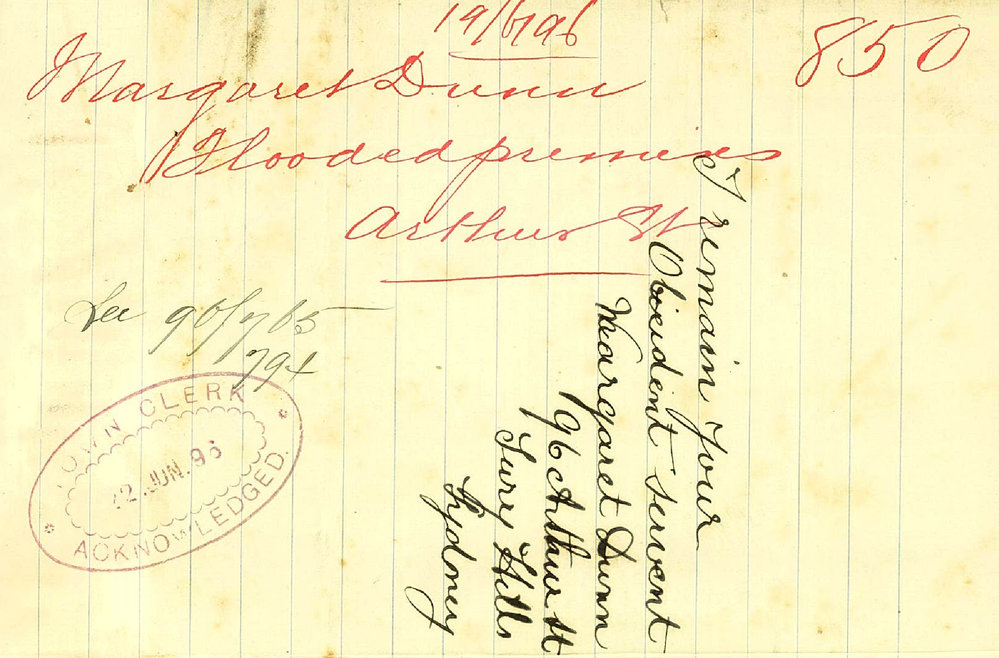 19/6/96
850
Margaret Dunn
Flooded premises
Arthur St
See 96/765
794
TOWN CLERK
22 JUN. 96
ACKNOWLEDGED.
I remain your
Obeident servent
Margaret Dunn
196 Arthur St
Surry Hills
Sydney